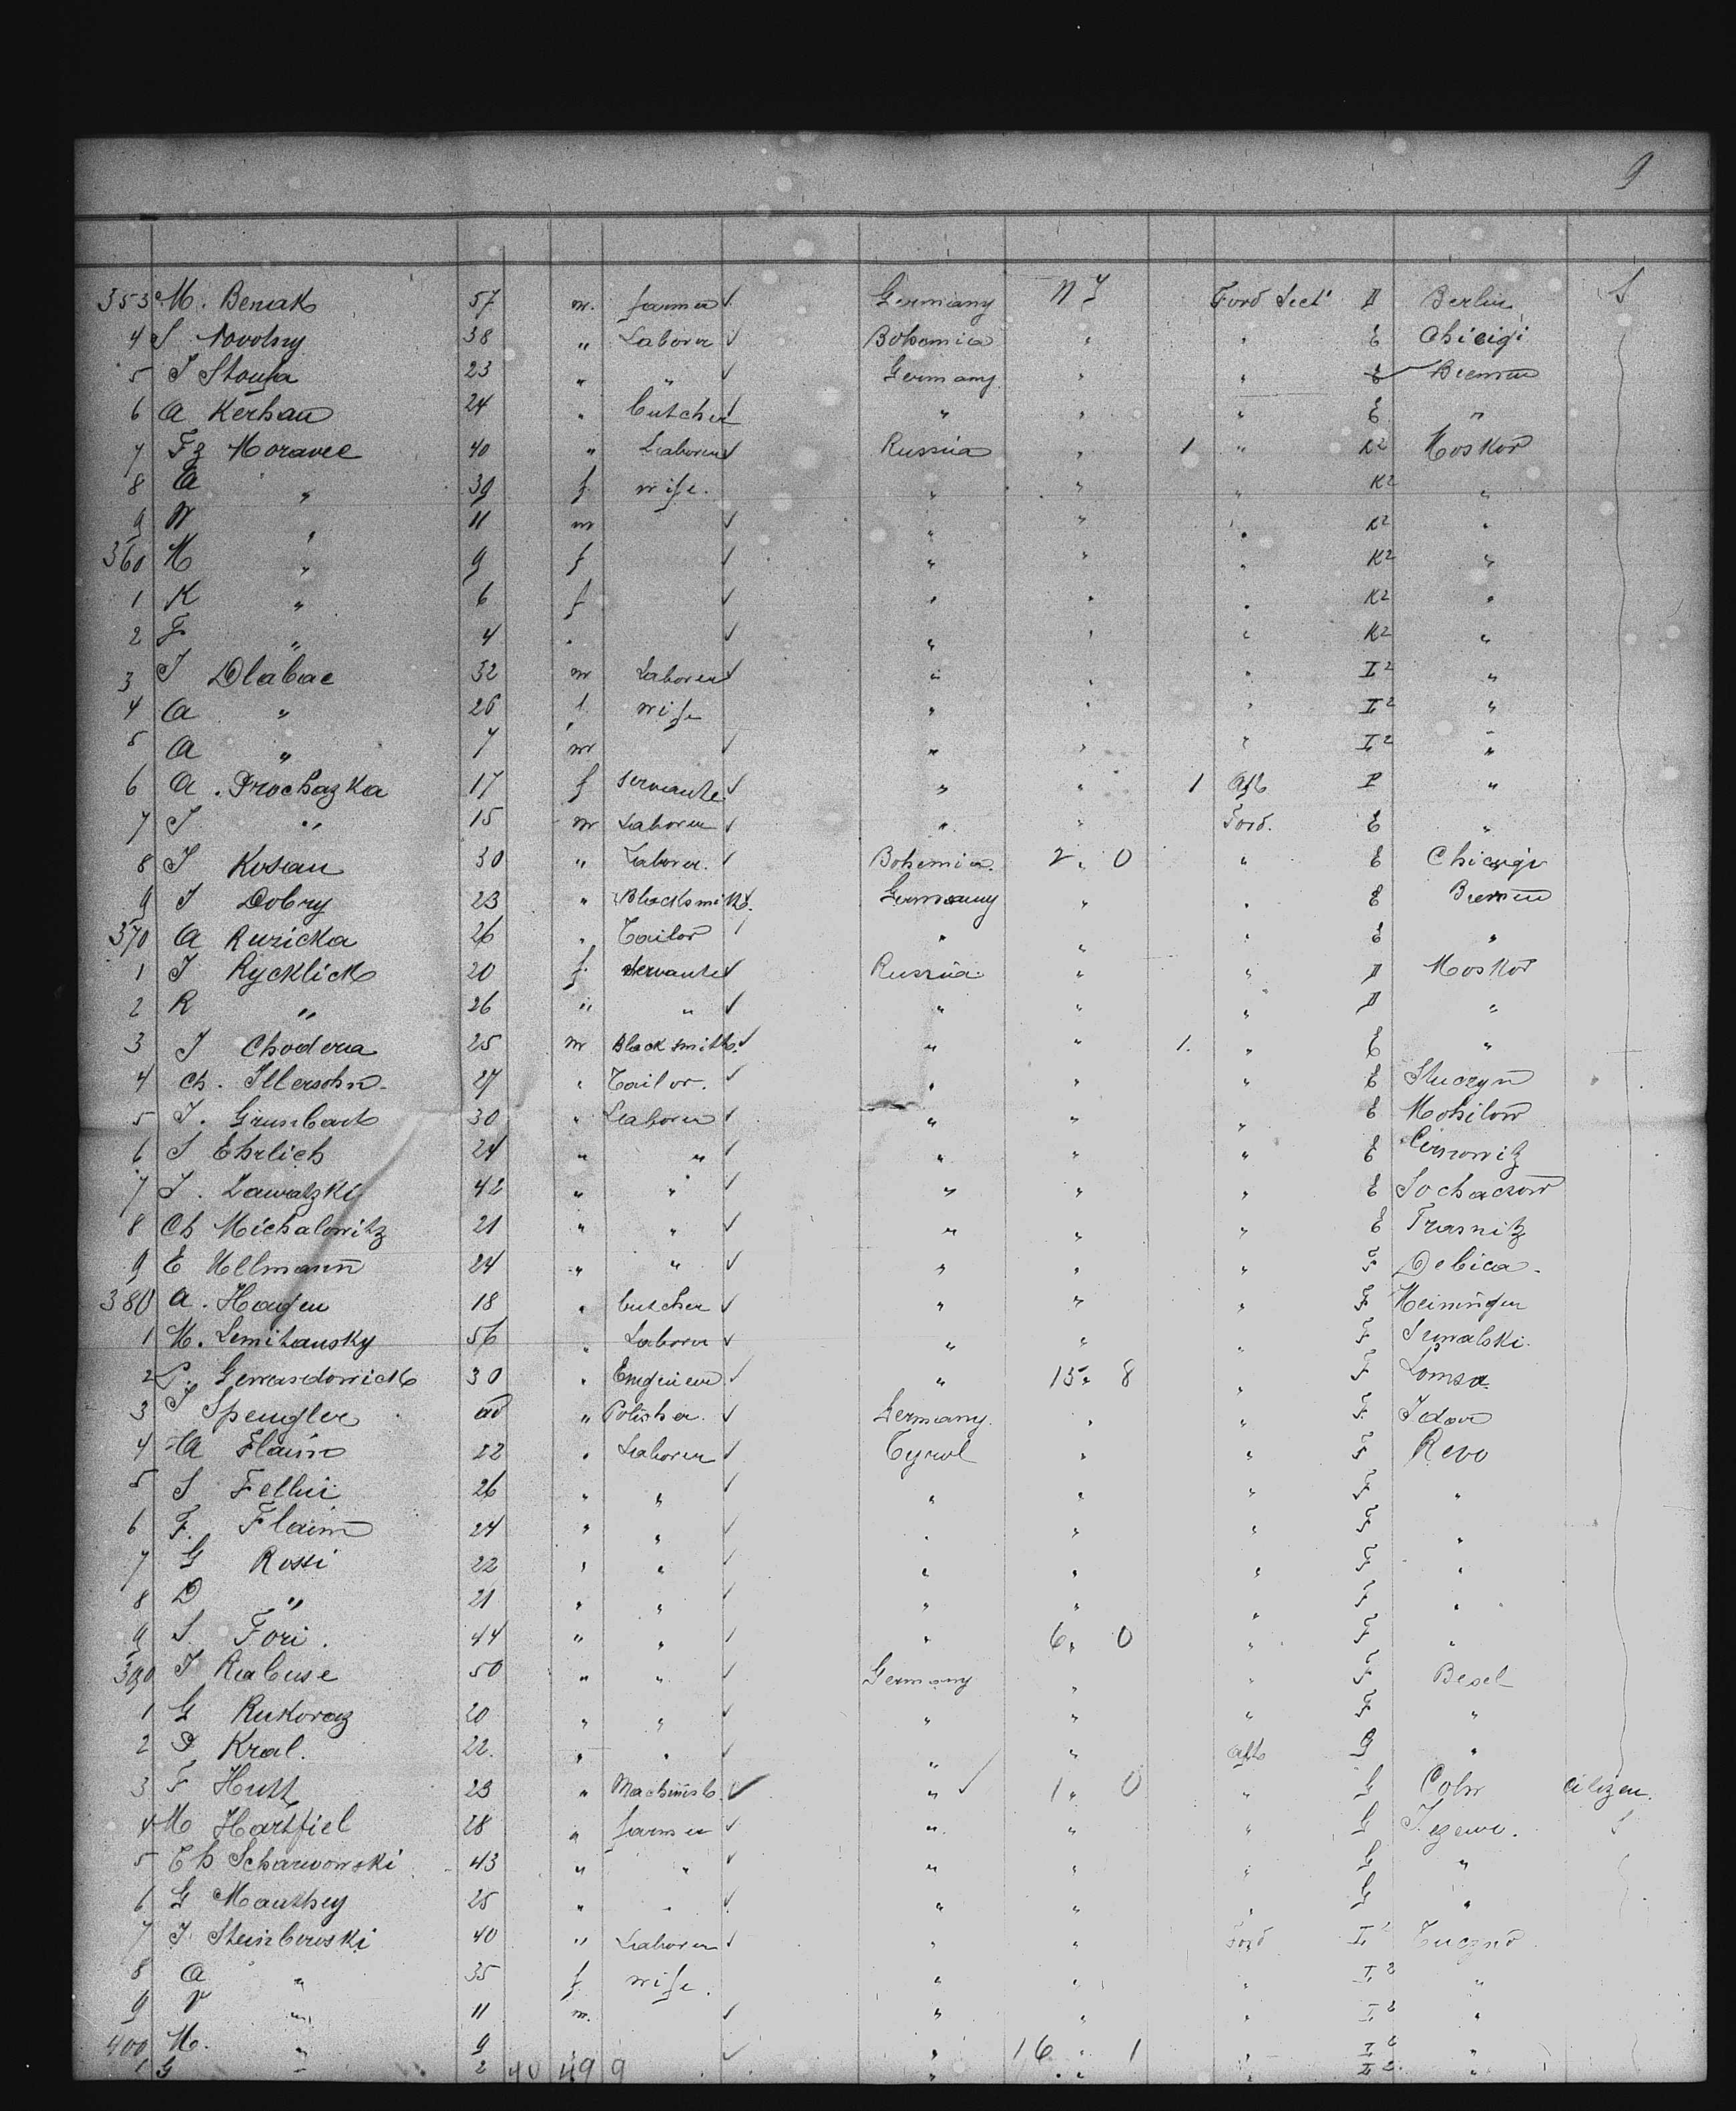 9
353 M. Beniak 57 m. farmer ✓ Germany N Y Ford Sect' D Berlin
4 S Novotny 38 " Laborer ✓ Bohemia " " E Chicigi
5 J Stouha 23 " " ✓ Germany " " E Bremen
6 A Kerhau 24 " butcher ✓ " " " E "
7 Fz Moravec 40 " Laborer ✓ Russia " 1 " K2 Moskow
8 A " 39 f wife. " " " K2 "
9 W " 11 m ✓ " " " K2 "
360 M " 9 f ✓ " " " K2 "
1 K " 6 f ✓ " " " K2 "
2 F " 4 " ✓ " " " K2 "
3 J Dlabac 32 m Laborer ✓ " " " I2 "
4 A " 26 f wife " " " I2 "
5 A " 7 m ✓ " " " I2 "
6 A. Prochazka 17 f servante ✓ " " 1 Aft P "
7 J " 15 m Laborer ✓ " " Ford. E "
8 J Kosau 30 " Laborer. ✓ Bohemia. 2 " 0 " E Chicago
9 J Dobry 23 " Blacksmith. ✓ Germany " " E Bremen
370 A Ruzicka 26 " Tailor ✓ " " " E "
1 J Rycklick 20 f. servante ✓ Russia. " " D Moskow
2 R " 26 " " ✓ " " " D "
3 J Chodera 25 m Blacksmith. ✓ " " 1. " E "
4 Ch. Illersohn 27 " Tailor. ✓ " " " E Stuczyn
5 J. Grunbart 30 " Laborer ✓ " " " E Mohilow
6 S Ehrlich 24 " " ✓ " " " E
7 J. Zawatzki 42 " " ✓ " " " E Sochaczow
8 Ch Michalowitz 21 " " ✓ " " " E Trasnitz
9 E Ullmann 24 " " ✓ " " " F Debica.
380 A. Hagen 18 " butcher ✓ " " " F Meiningen
1 M. Semitansky 56 " Laborer ✓ " " " F Suwalski.
2 P. 30 " Engineer ✓ " 15 " 8 " F Lomsa.
3 J Spengler " Polisher. ✓ Germany. " " F
4 A Flaim 22 " Laborer ✓ Tyrol " " F Revo
5 S Fellin 26 " " ✓ " " " F "
6 F. Flaim 24 " " ✓ " " " F "
7 G Rossi 22 " " ✓ " " " F "
8 D " 21 " " ✓ " " " F "
9 S. Fori. 44 " " ✓ " 6 " 0 " F "
390 J Rabuse 50 " " ✓ Germany " " F Besel
1 G Rukoraz 20 " " ✓ " " " F "
2 P Kral. 22. " " ✓ " " Aft G "
3 F Hutt 23 " Machinist. ✓ " ✓ 1 " 0 " G Coln Citizen.
4 M Hartfiel 28 " farmer ✓ " " " G Jezewo.
5 Ch Scharwonski 43 " " ✓ " " " G "
6 G Manthey 25 " " ✓ " " " G "
7 J. Steinborski 40 " Laborer ✓ " " Ford I2 Tuczno
8 A " 35 f wife. " " " I2 "
9 V " 11 m. ✓ " " " I2 "
400 M. " 9 ✓ " 16 " 1 " I2 "
1 G " 2 40 49 9 " " " I2. "